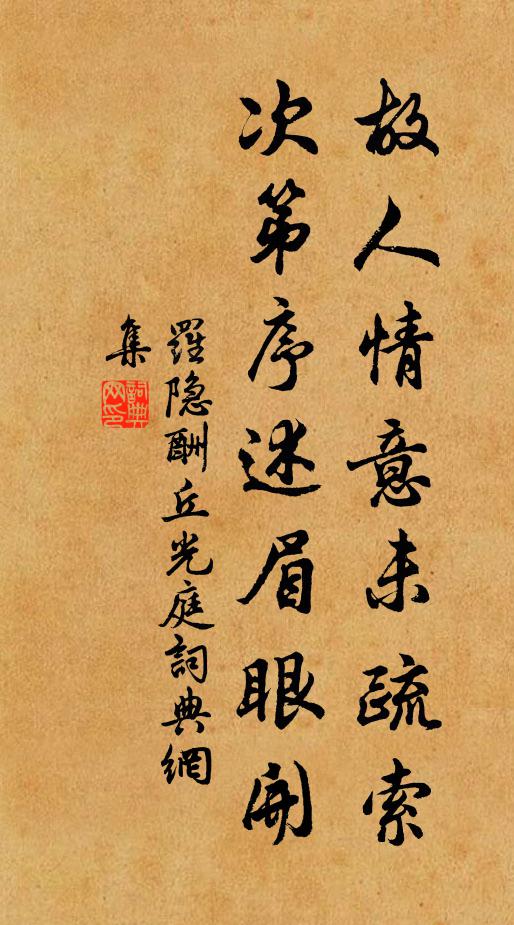 故人情意未疏索
次第序述眉眼開
羅隐酬丘光庭詞典網
集
詞典網印